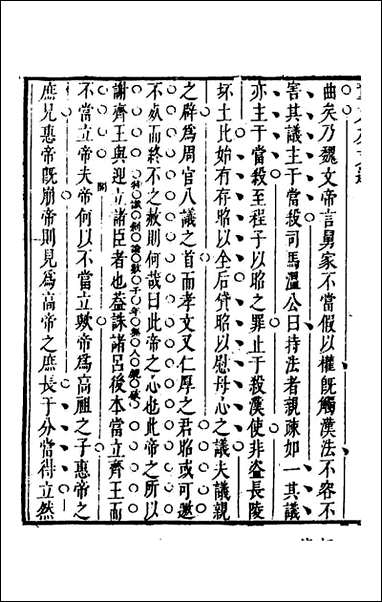 曲矣乃魏文帝言舅家不當假以權既觸漢法不容不
害其議主于當殺司馬溫公曰持法者親疎如一其議
亦主于當殺至程子以昭之罪止于殺漢使非盜長陵
坏土比始有存昭以全后貸昭以慰母心之議夫議親
之辟為周官八議之首而孝文又仁厚之君昭或可邀
不死而終不之赦則何哉曰此帝之心也此帝之所以
謝齊王與迎立諸臣者也葢誅諸呂後本當立齊王而
不當立帝夫帝何以不當立歟帝為高祖之子惠帝之
庶兄惠帝既崩帝則見為高帝之庶長于分當得立然